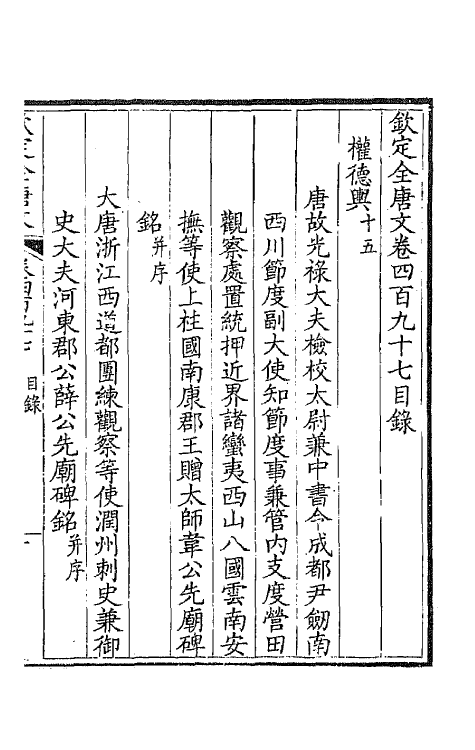 欽定全唐文卷四百九十七目錄
權德輿十五
唐故光祿大夫檢校太尉兼中書令成都尹劒南
西川節度副大使知節度事兼管内支度營田
觀察處置統押近界諸蠻夷西山八國雲南安
撫等使上柱國南康郡王贈太師韋公先廟碑
銘并序
大唐浙江西道都團練觀察等使潤州刺史兼御
史大夫河東郡公薛公先廟碑銘并序
目錄
一